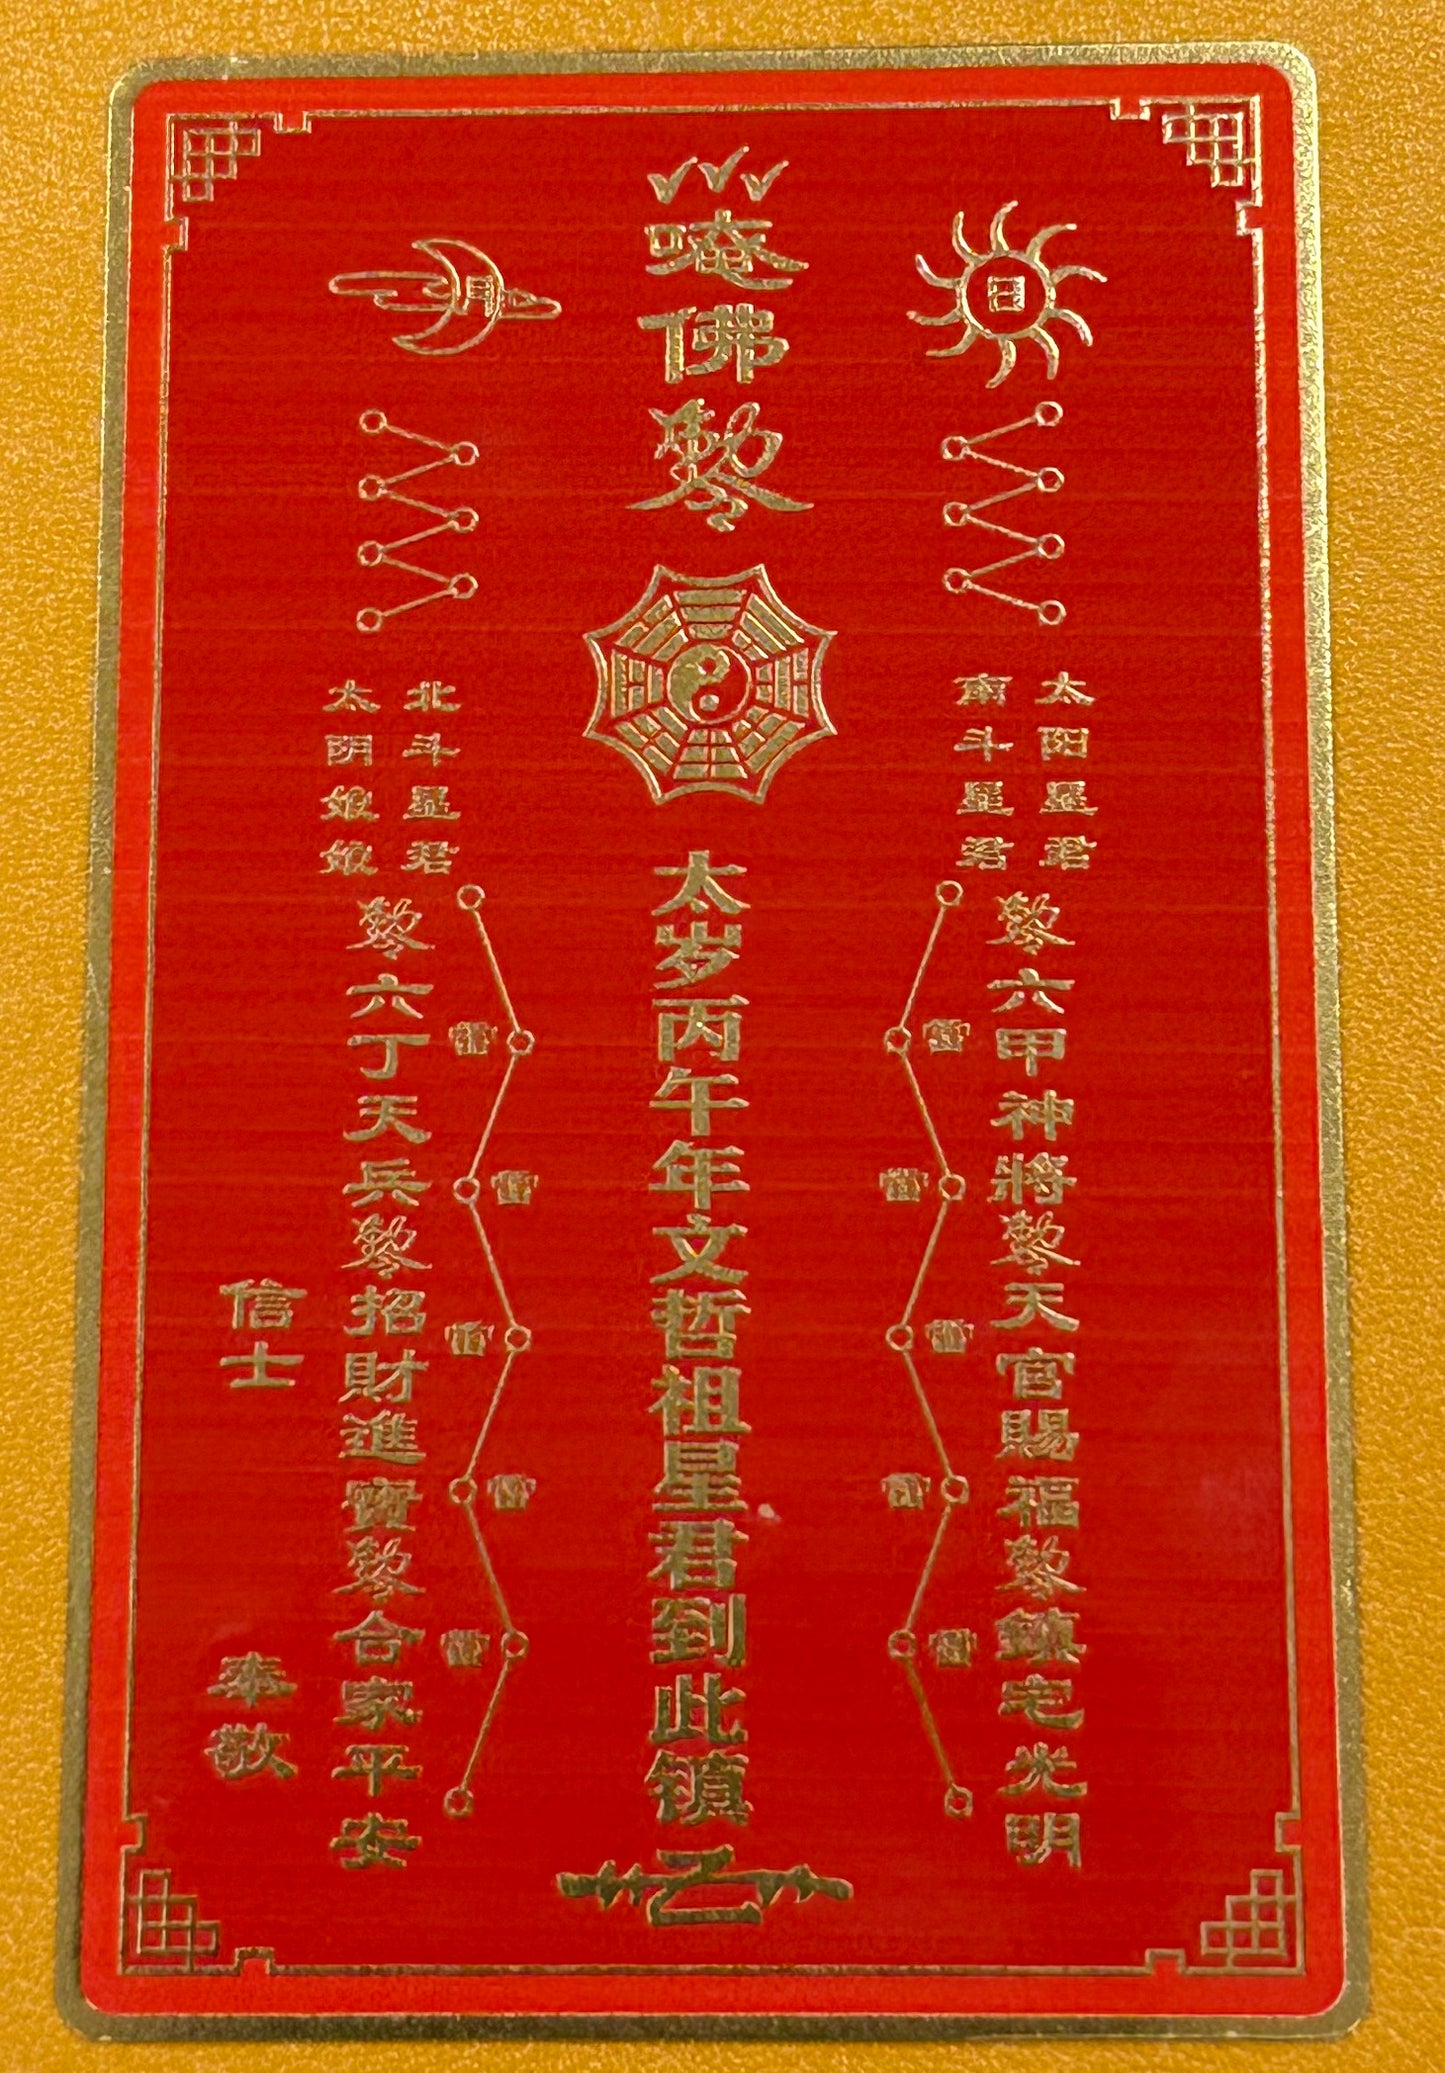 日
太阳星君
南斗星君
勅令六甲神將勅令天官賜福勅令鎮宅光明
唵佛勅令
太岁丙午年文哲祖星君到此镇
月
北斗星君
太阴娘娘
勅令六丁天兵勅令招財進寶勅令合家平安
信士 奉敬